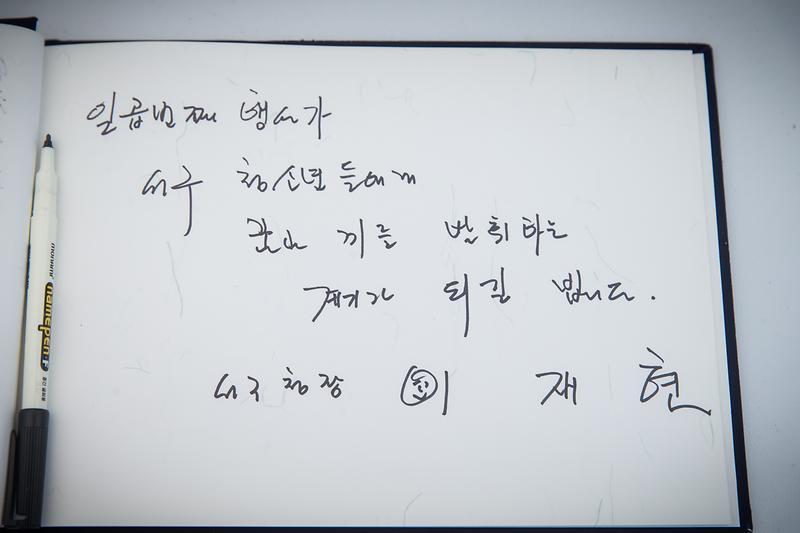 일곱번째 행사가
서구 청소년들에게
끼를 발휘하는
계기가 되길 빕니다.
서구청장 이 재 현
monami namepen-F